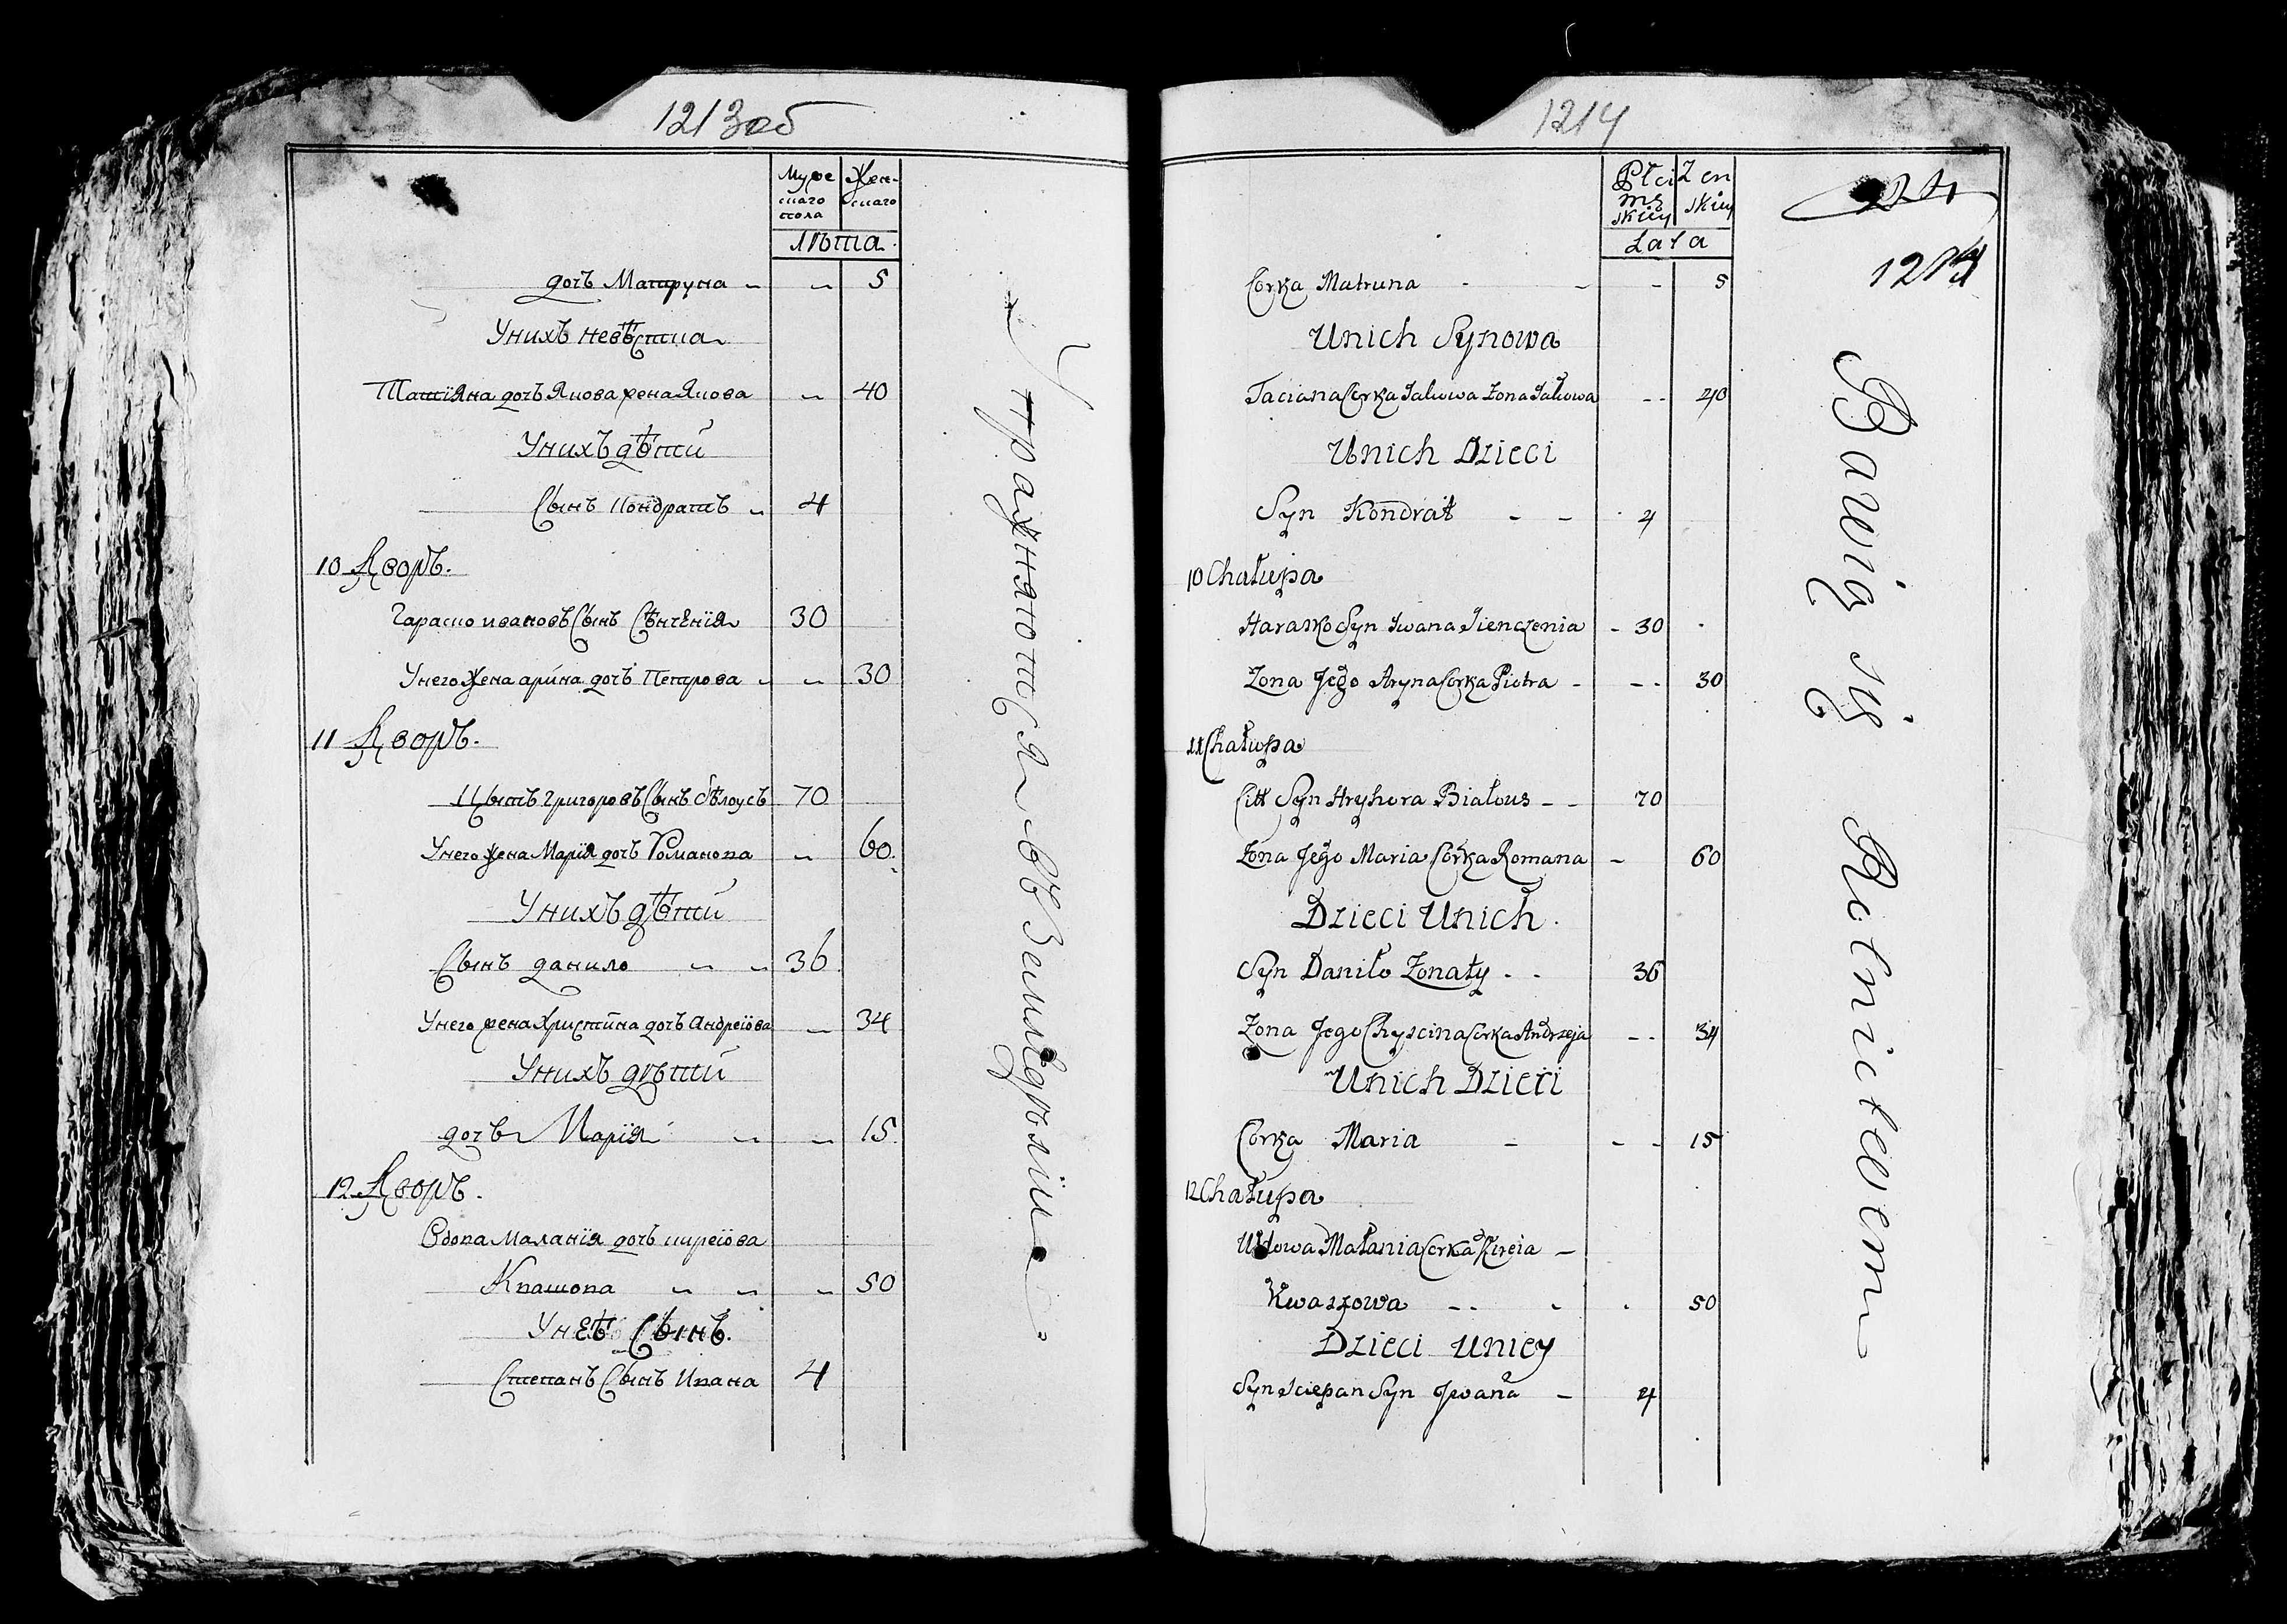 1213об
Муже Жен-
скаго скаго
пола
лѣта
дочь Матруна 5
У нихъ невѣстка
Татіяна дочь Якова жена Якова 40
У нихъ дѣти
Сынъ Кондратъ 4
10 Дворъ.
Гараско ивановъ Сынъ Сѣнченія 30
У него жена арина дочь Петрова 30
11 Дворъ.
Кытъ григоровъ Сынъ бѣлоусъ 70
У него жена Марія дочь Романова 60
У нихъ дѣти
Сынъ данило 36
У него жена Христина дочь андреіова 34
У нихъ дѣти
дочь Марія 15
12 Дворъ.
Вдова Маланія дочь киреіова
Квашова 50
У неѣ Сынъ.
Степанъ Сынъ Ивана 4
Упражняются въ Земледѣліи
1214
Płci Zen
mę skiey
skiey
Lata
24
1214
Corka Matruna 5
Unich Synowa
Taciana Corka Jakowa Zona Jakowa 40
Unich Dzieci
Syn Kondrat 4
10 Chałupa
Harasko Syn Iwana Sienczenia 30
Zona Jego Aryna Corka Piotra 30
11 Chałupa
Citt Syn Hryhora Białous 70
Zona Jego Maria Corka Romana 60
Dzieci Unich
Syn Daniło Zonaty 36
Zona Jego Chryscina Corka Andrzeja 34
Unich Dzieci
Corka Maria 15
12 Chałupa
Wdowa Małania Corka Kireia
Kwaszowa 50
Dzieci Uniey
Syn Sciepan Syn Jwana 4
Bawią się Rolnictwem